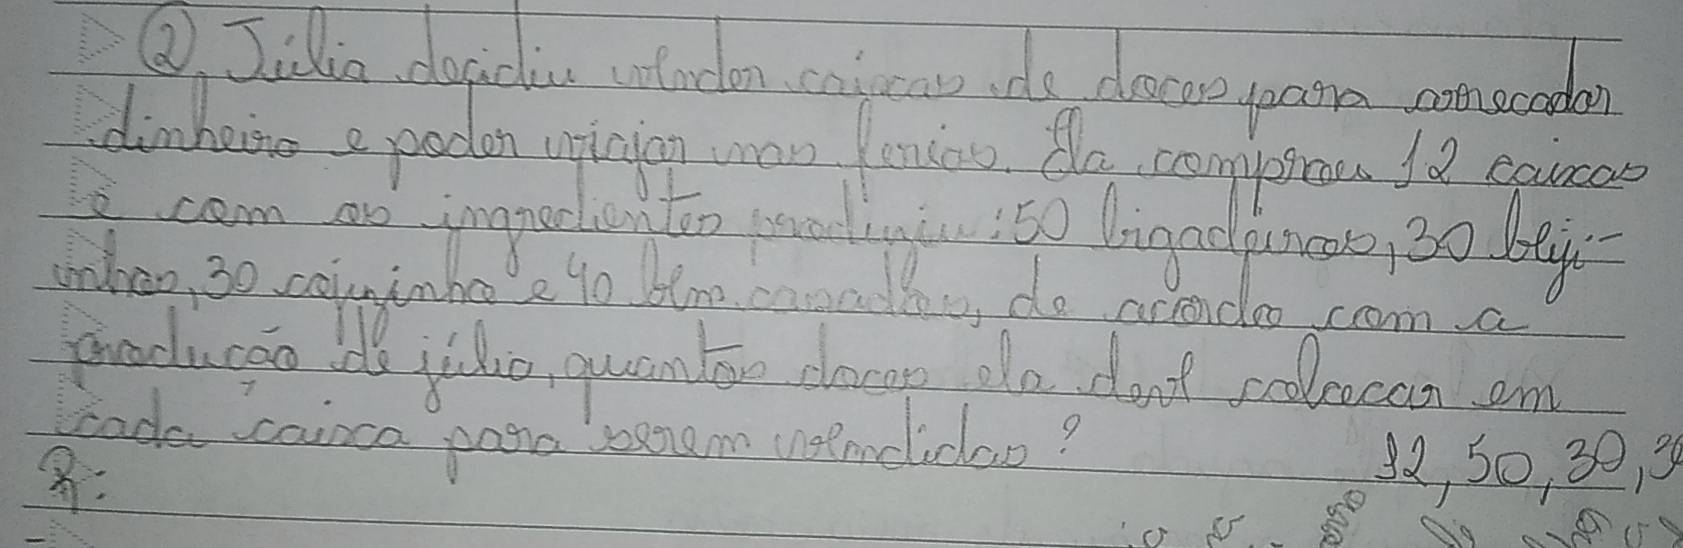 ② Júlia decidiu vender caixas de doces para arrecadar
dinheiro e poder viajar nas ferias. Ela comprou 12 caixas
e com os ingredientes produziu: 50 brigadeiros, 30 beiji-
nhos, 30 cajuzinho e 40 bem casados, de acordo com a
producão de júlia, quantos doces ela deve colocar em
cada caixa para serem vendidas?
R:
12, 50, 30, 30